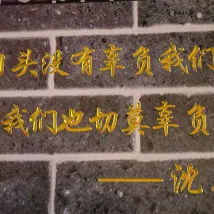 头没有辜负我们
我们也切莫辜负
——沈